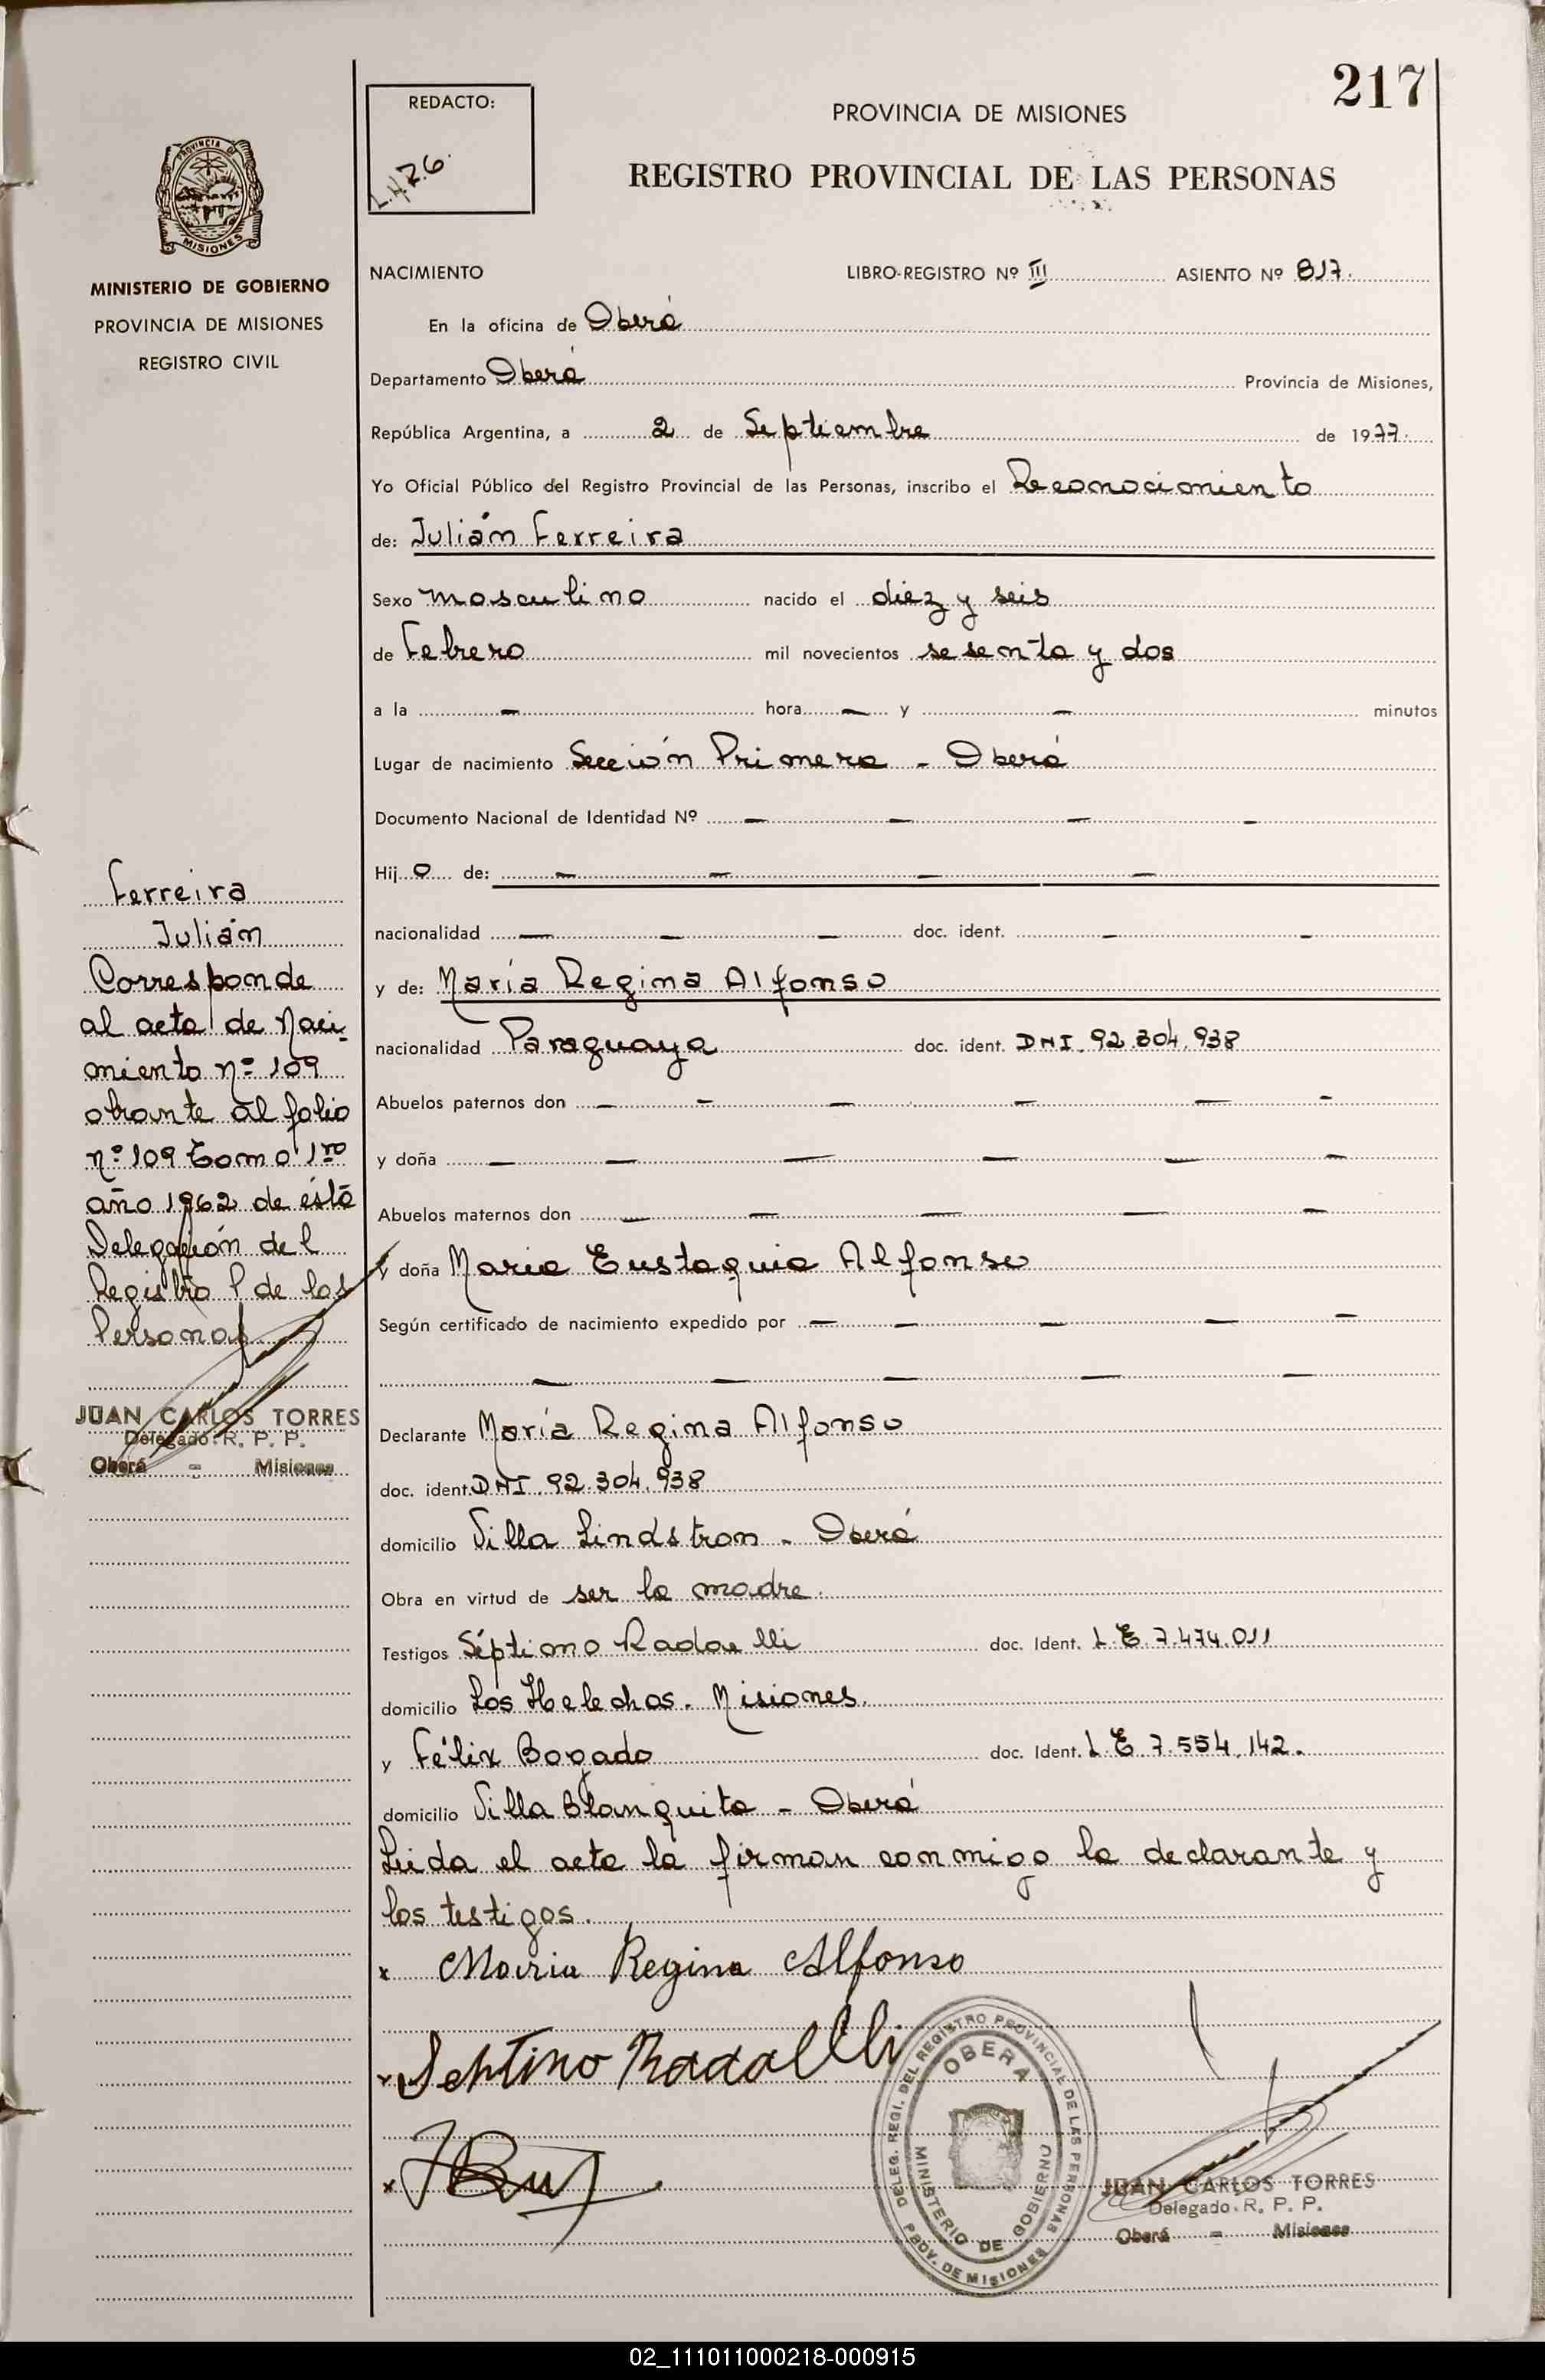 217
REDACTO:
L.426.
PROVINCIA DE MISIONES
REGISTRO PROVINCIAL DE LAS PERSONAS
PROVINCIA D
MISIONES
MINISTERIO DE GOBIERNO
PROVINCIA DE MISIONES
REGISTRO CIVIL
NACIMIENTO LIBRO-REGISTRO Nº III ASIENTO Nº 817.
En la oficina de Oberá
Departamento Oberá Provincia de Misiones,
República Argentina, a 2 de Septiembre de 1977.
Yo Oficial Público del Registro Provincial de las Personas, inscribo el Reconocimiento
de: Julián Ferreira
Sexo masculino nacido el diez y seis
de Febrero mil novecientos sesenta y dos
a la — hora — y — minutos
Lugar de nacimiento Sección Primera - Oberá
Documento Nacional de Identidad Nº — — — —
Hij o de: — — — —
nacionalidad — — — doc. ident. — —
y de: María Regina Alfonso
nacionalidad Paraguaya doc. ident. DNI. 92.304.938
Abuelos paternos don — — — — — —
y doña — — — — — —
Abuelos maternos don — — — — —
y doña Maria Eustaquia Alfonso
Según certificado de nacimiento expedido por — — — — —
— — — — —
Declarante María Regina Alfonso
doc. ident. DNI. 92.304.938
domicilio Villa Lindstron - Oberá
Obra en virtud de ser la madre.
Testigos Séptimo Radaelli doc. Ident. L.E. 7.474.011
domicilio Los Helechos. Misiones.
y Félix Bogado doc. Ident. L.E. 7.554.142.
domicilio Villa Blanquita - Oberá
Leída el acta la firman conmigo la declarante y
los testigos.
x Maria Regina Alfonso
x Septino Radaelli
x
Ferreira
Julián
Corresponde
al acta de Naci-
miento nº 109
obrante al folio
nº 109 Tomo 1ro
año 1962 de ésta
Delegación del
Registro P de las
Personas.
JUAN CARLOS TORRES
Delegado R. P. P.
Oberá - Misiones
DELEG. REGI. DEL REGISTRO PROVINCIAL DE LAS PERSONAS
OBERA
MINISTERIO DE GOBIERNO
PROV. DE MISIONES
JUAN CARLOS TORRES
Delegado R. P. P.
Oberá - Misiones
02_111011000218-000915